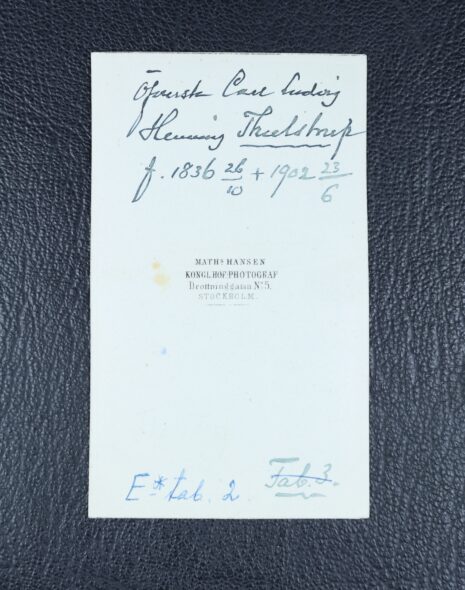 Öfverste Carl Ludvig
Henning Thulstrup
f. 1836 26/10 + 1902 23/6
MATHS HANSEN
KONGL.HOF-PHOTOGRAF.
Drottninggatan No 5.
STOCKHOLM.
E* tab. 2 Tab. 3.